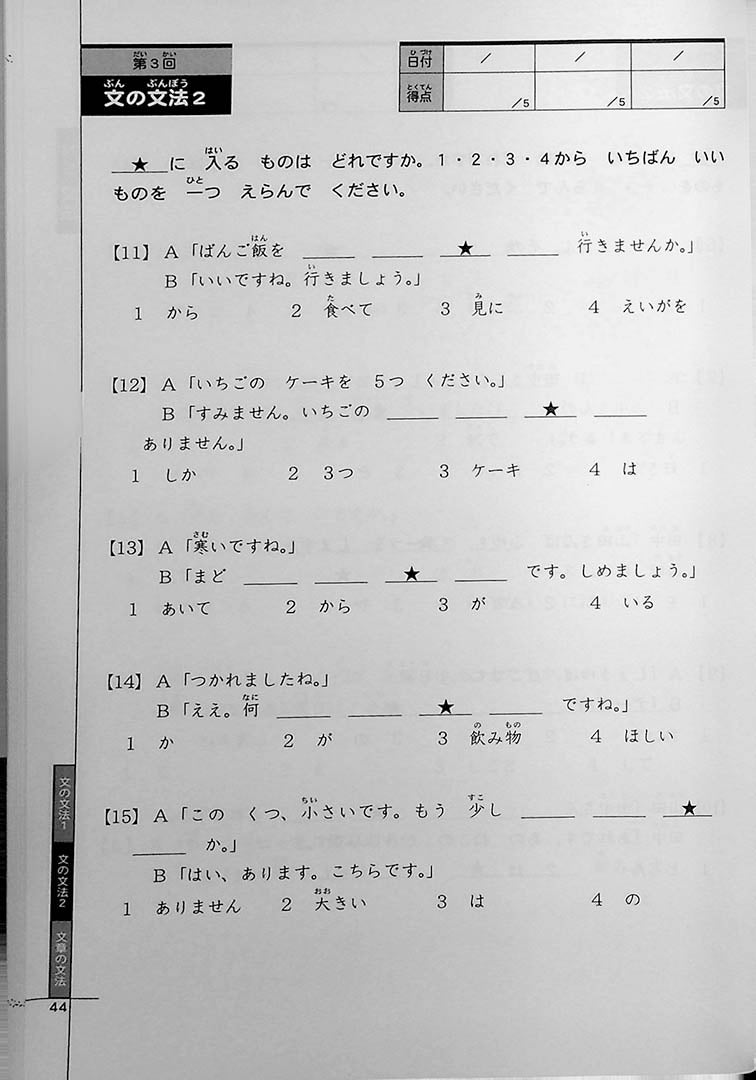 第3回
文の文法2
日付 / / /
得点 /5 /5 /5
★に 入る ものは どれですか。1・2・3・4から いちばん いい
ものを 一つ えらんで ください。
【11】 A「ばんご飯を ____ ____ ★ ____ 行きませんか。」
B「いいですね。行きましょう。」
1 から 2 食べて 3 見に 4 えいがを
【12】 A「いちごの ケーキを 5つ ください。」
B「すみません。いちごの ____ ____ ★ ____
ありません。」
1 しか 2 3つ 3 ケーキ 4 は
【13】 A「寒いですね。」
B「まど ____ ____ ★ ____ です。しめましょう。」
1 あいて 2 から 3 が 4 いる
【14】 A「つかれましたね。」
B「ええ。何 ____ ____ ★ ____ ですね。」
1 か 2 が 3 飲み物 4 ほしい
【15】 A「この くつ、小さいです。もう 少し ____ ____ ★
____ か。」
B「はい、あります。こちらです。」
1 ありません 2 大きい 3 は 4 の
文の文法1
文の文法2
文章の文法
44